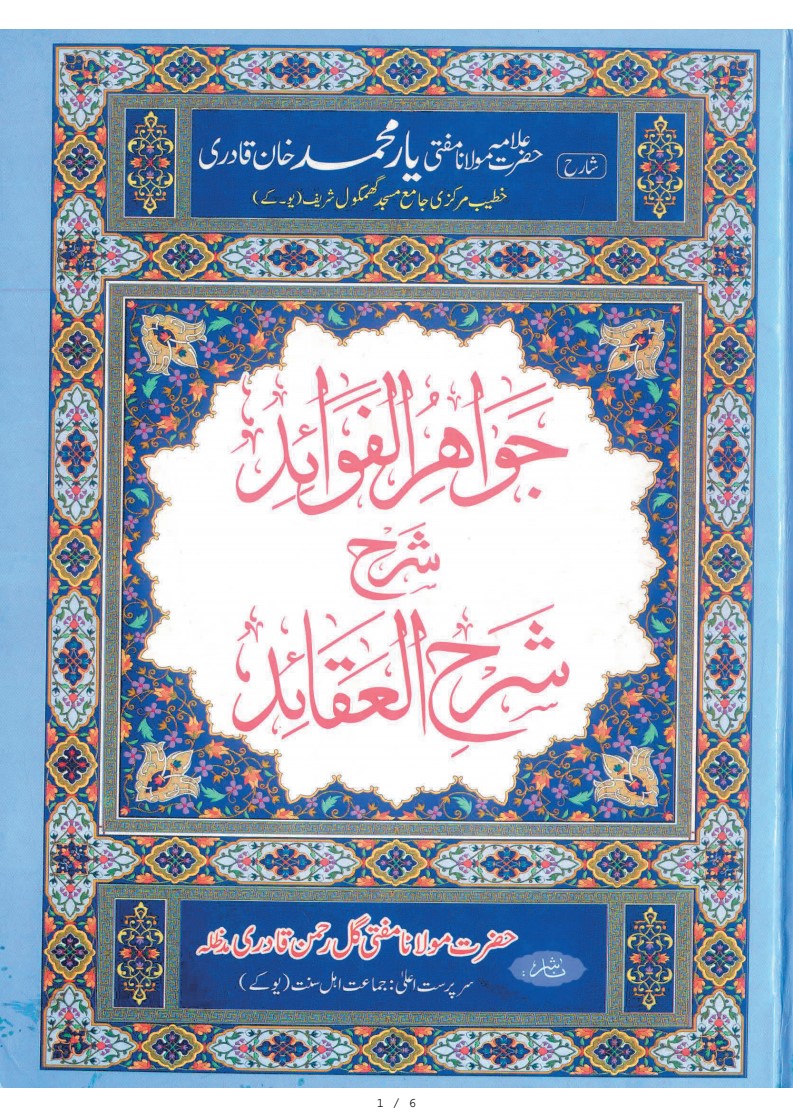 شارح
حضرت علامہ مولانا مفتی یار محمد خان قادری
خطیب مرکزی جامع مسجد گھمکول شریف (یو۔کے)
جَوَاهِرُ الْفَوَائِدِ
شرح
شَرْحِ الْعَقَائِدِ
ناشر:
حضرت مولانا مفتی گل رحمٰن قادری مدظلہ
سرپرست اعلیٰ: جماعت اہل سنت (یو کے)
1 / 6